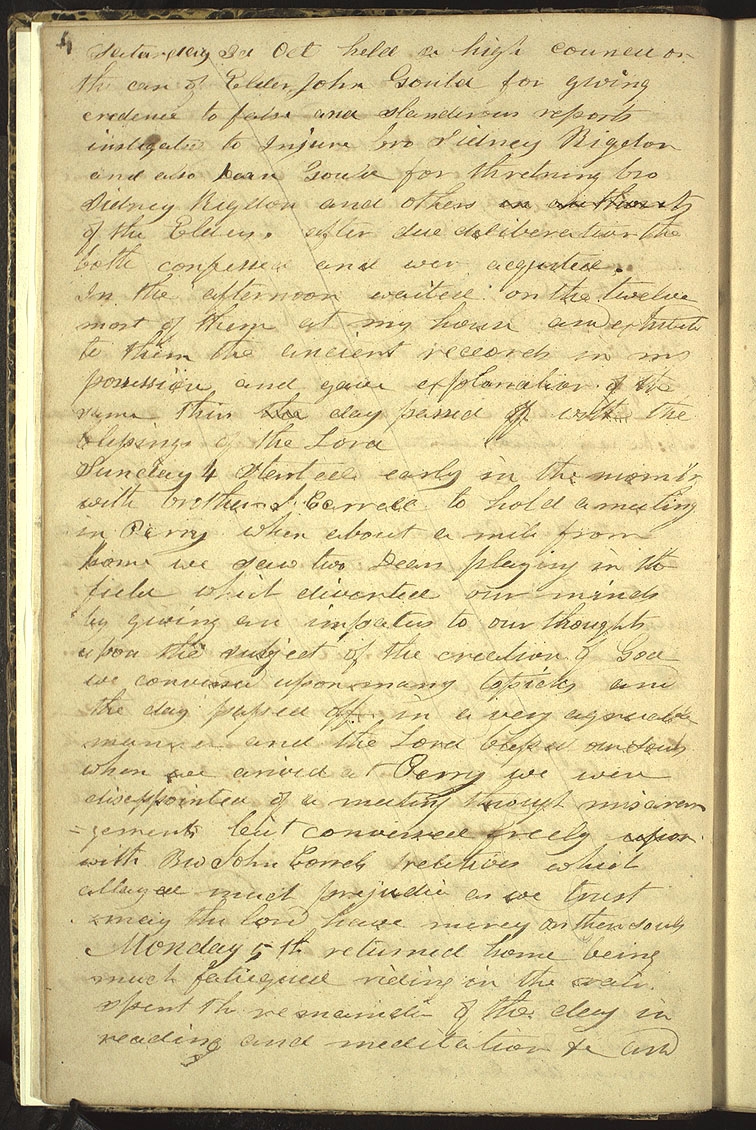 4
Saturday 3d Oct held a high council on
the case of Elder John Gould for giving
credence to false and slanderous reports
instigated to Injure bro Sidney Rigdon
and also Dean Gould for thretning bro
Sidney Rigdon and others in authority
of the Elders. after due deliberation the
both confessed and wer acquited.
In the afternoon waited on the twelve
most of them at my house and exhibited
to them the ancient records in my
possession and gave explanation of the
same thus the day passed off with the
blessings of the Lord
Sunday 4 started early in the morning
with brother J. Correll to hold a meeting
in Perry when about a mile from
home we saw two Dears playing in the
field which diverted our minds
by giving an impatus to our thoughts
upon the subject of the creation of God
we conversed upon many topicks and
the day passed off in a very agreeable
manner and the Lord blessed our souls
when we arived at Perry we were
disappointed of a meeting through misaran
=gements but conversed freely upon
with Bro John Correls relatives which
allayed much prejudice as we trust
may the lord have mercy on their souls
Monday 5th returned home being
much fatiegued riding in the rain
spent the remainder of the day in
reading and meditation &c and